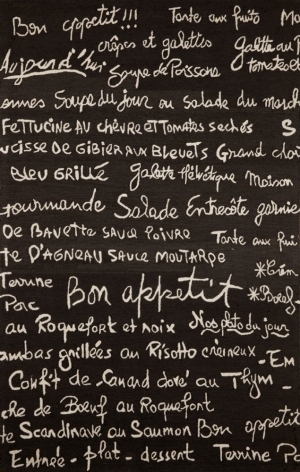 Bon appetit!!! Tarte aux fruits
crêpes et galettes Galette au P
Aujourd'hui Soupe de Poissons tomates et
ennes Soupe du jour ou salade du march
FETTUCINE AU CHÈVRE ET TOMATES SECHÉS S
UCISSE DE GIBIER AUX BLEUETS Grand choi
BLEU GRILLÉ Galette Helvétique Maison
gourmande Salade Entrecôte garnie
DE BAVETTE SAUCE POIVRE Tarte aux frui
te D'AGNEAU SAUCE MOUTARDE
Terrine Bon appetit *Crèm
Porc *Boeuf
au Roquefort et noix Nos plats du jour
ambas grillées au Risotto crèmeux - Em
Confit de Canard doré au Thym -
che de Bœuf au Roquefort
te Scandinave au Saumon Bon appetit
Entrée - plat - dessent Terrine Pa